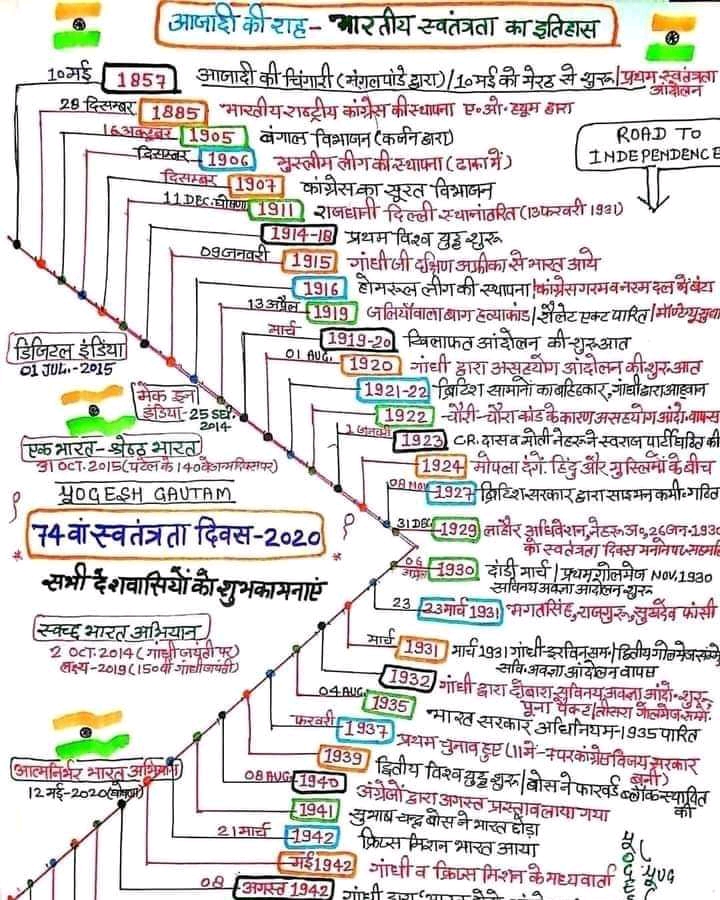 आजादी की राह - भारतीय स्वतंत्रता का इतिहास
10 मई 1857 आजादी की चिंगारी (मंगल पांडे द्वारा)/10 मई को मेरठ से शुरू/प्रथम स्वतंत्रता
आंदोलन
ROAD TO
INDEPENDENCE
28 दिसम्बर 1885 भारतीय राष्ट्रीय कांग्रेस की स्थापना ए०ओ० ह्यूम द्वारा
16 अक्टूबर 1905 बंगाल विभाजन (कर्जन द्वारा)
दिसम्बर 1906 मुस्लीम लीग की स्थापना (ढाका में)
दिसम्बर 1907 कांग्रेस का सूरत विभाजन
11 DEC. घोषणा 1911 राजधानी दिल्ली स्थानांतरित (13 फरवरी 1931)
1914-18 प्रथम विश्व युद्ध शुरू
09 जनवरी 1915 गांधी जी दक्षिण अफ्रीका से भारत आये
1916 होमरूल लीग की स्थापना/कांग्रेस गरम व नरम दल में बंटा
13 अप्रैल 1919 जलियाँवाला बाग हत्याकांड/रौलेट एक्ट पारित/मॉण्टेग्यु सुधा
मार्च 1919-20 खिलाफत आंदोलन की शुरुआत
01 AUG. 1920 गांधी द्वारा असहयोग आंदोलन की शुरुआत
1921-22 ब्रिटिश सामानों का बहिष्कार, गांधी द्वारा आहवान
1922 चौरी-चौरा कांड के कारण असहयोग आंदो. वापस
1 जनवरी 1923 C.R. दास व मोती नेहरू ने स्वराज पार्टी घठित की
1924 मोपला दंगे. हिंदु और मुस्लिमों के बीच
08 Nov 1927 ब्रिटिश सरकार द्वारा साइमन कमी० गठित
31 DEC 1929 लाहौर अधिवेशन, नेहरू अ०, 26 जन. 1930
को स्वतंत्रता दिवस मनाने पर सहमति
06 अप्रैल 1930 दांडी मार्च / प्रथम गोलमेज NOV.1930
सविनय अवज्ञा आंदोलन शुरू
23 23 मार्च 1931 भगतसिंह, राजगुरू, सुखदेव फांसी
मार्च 1931 मार्च 1931 गांधी-इरविन सम./द्वितीय गोलमेज सम्मे
सवि. अवज्ञा आंदोलन वापस
1932 गांधी द्वारा दोबारा सविनय अवज्ञा आंदो. शुरू,
पूना पैक्ट/तीसरा गोलमेज सम्मे.
04 AUG. 1935 भारत सरकार अधिनियम-1935 पारित
फरवरी 1937 प्रथम चुनाव हुए (11 में-7 पर कांग्रेस विजय, सरकार
बनी)
1939 द्वितीय विश्व युद्ध शुरू/बोस ने फारवर्ड ब्लॉक स्थापित
की
08 AUG 1940 अंग्रेजों द्वारा अगस्त प्रस्ताव लाया गया
1941 सुभाष चन्द्र बोस ने भारत छोड़ा
21 मार्च 1942 क्रिप्स मिशन भारत आया
मई 1942 गांधी व क्रिप्स मिशन के मध्य वार्ता
08 अगस्त 1942 गांधी द्वारा
डिजिटल इंडिया
01 JUL.-2015
मेक इन
इंडिया-25 SEP.
2014
एक भारत-श्रेष्ठ भारत
31 OCT-2015 (पटेल के 140 वें जन्मदिवस पर)
YOGESH GAUTAM
74 वां स्वतंत्रता दिवस-2020
सभी देशवासियों को शुभकामनाएं
स्वच्छ भारत अभियान
2 OCT-2014 (गांधी जयंती पर)
लक्ष्य-2019 (150 वीं गांधी जयंती)
आत्मनिर्भर भारत अभियान
12 मई-2020 (घोषणा)